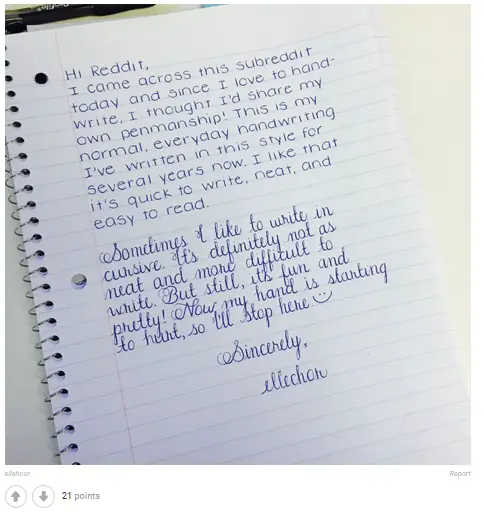 Hi Reddit,
I came across this subreddit
today and since I love to hand-
write, I thought I'd share my
own penmanship! This is my
normal, everyday handwriting.
I've written in this style for
several years now. I like that
it's quick to write, neat, and
easy to read.
Sometimes I like to write in
cursive. It's definitely not as
neat and more difficult to
write. But still, it's fun and
pretty! Now my hand is starting
to hurt, so I'll stop here
Sincerely,
ellechor
ellehcor
Report
21 points